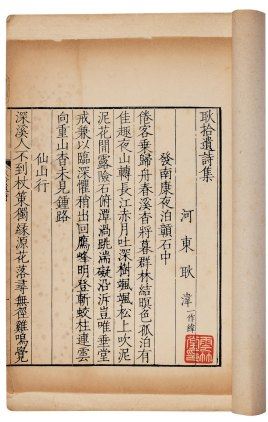 耿拾遺詩集
河東耿湋一作緯
發南康夜泊灨石中
倦客乘歸舟春溪杳將暮群林結暝色孤泊有
佳趣夜山轉長江赤月吐深樹颯颯松上吹泛
泛花間露險石俯潭渦跳湍礙沿泝豈唯垂堂
戒兼以臨深懼稍出回鴈峰明登斬蛟柱連雲
向重山杳未見鍾路
仙山行
深溪人不到杖策獨緣源花落尋無徑雞鳴覺